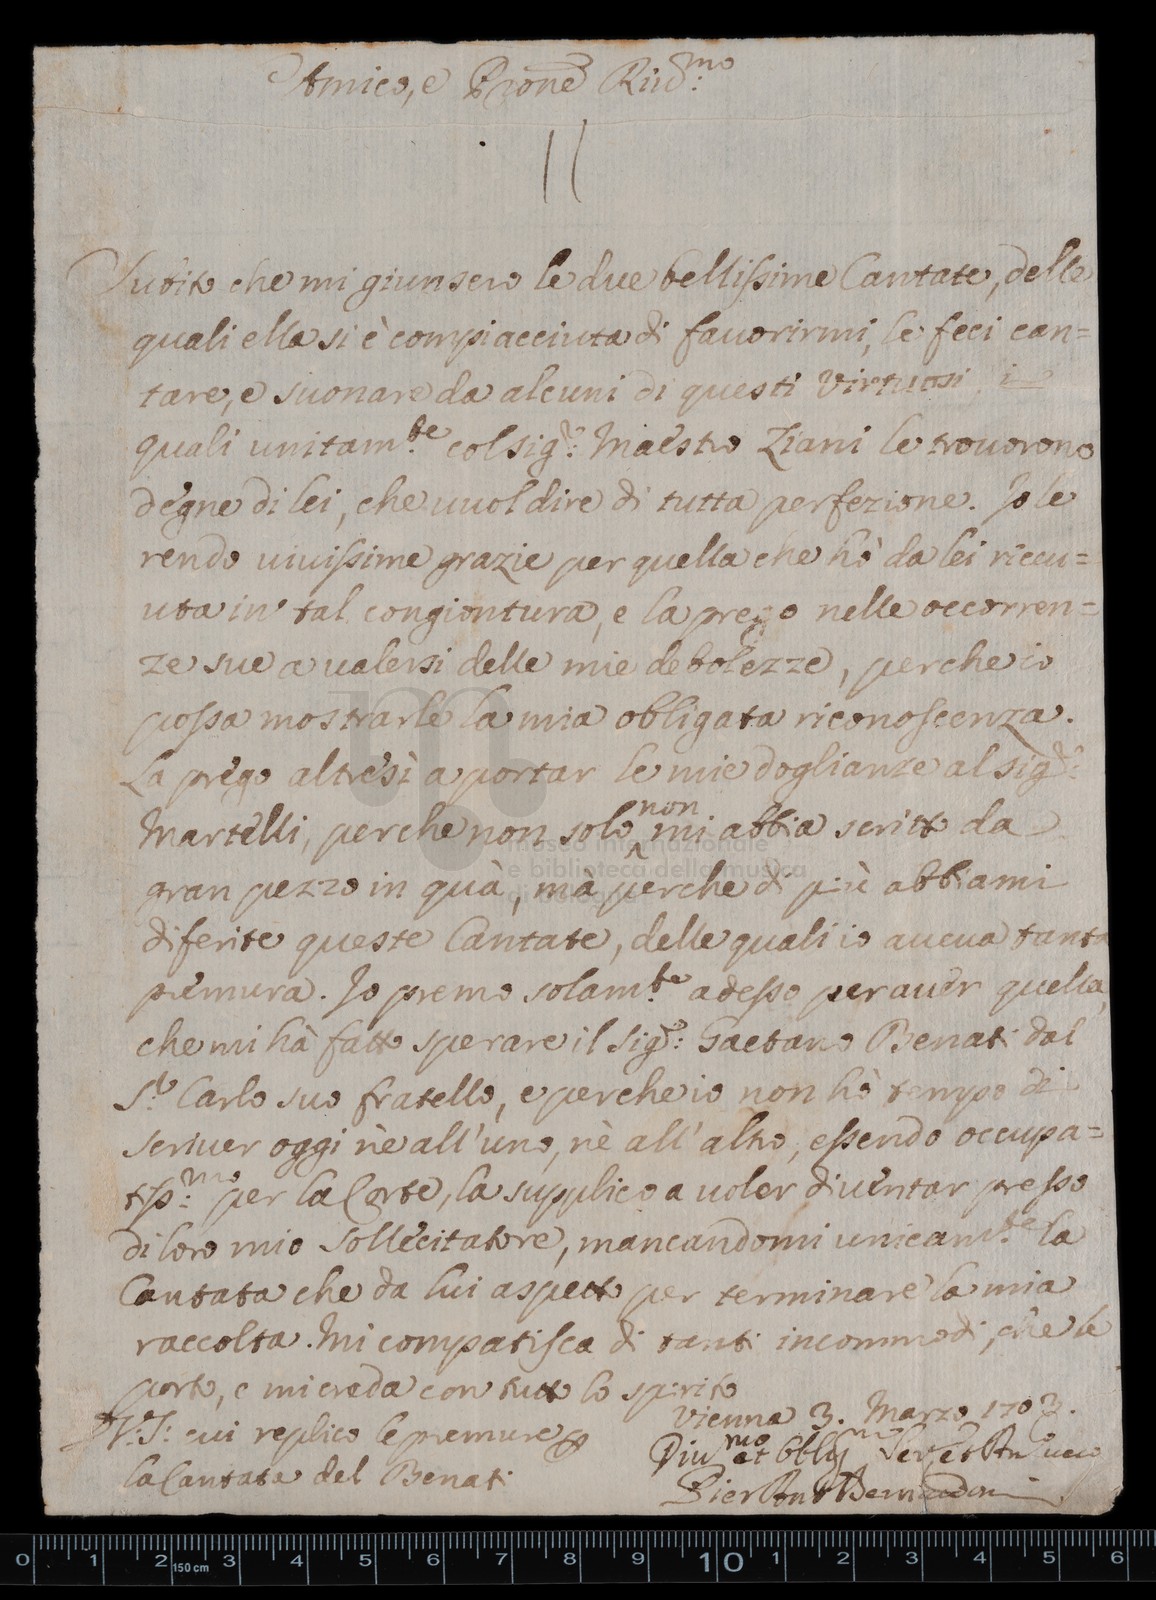 Amico, e Prone Riid.mo
Subito che mi giunsero le due bellissime Cantate, delle
quali ella si è compiacciuta di fauorirmi, le feci can=
tare, e suonare da alcuni di questi Virtuosi i
quali unitam.te col sig.r Maestro Ziani le trouorono
degne di lei, che uuol dire di tutta perfezione. Io le
rendo uiuissime grazie per quella che hò da lei riceu=
uta in tal congiontura, e la prego nelle occorren=
ze sue a ualersi delle mie debolezze, perche io
possa mostrarle la mia obligata riconoscenza.
La prego altresì a portar le mie doglianze al sig.r
Martelli, perche non solo non mi abbia scritto da
gran pezzo in quà, mà perche di più abbiami
diferite queste Cantate, delle quali io aueua tanta
premura. Io premo solam.te adesso per auer quella,
che mi hà fatto sperare il sig.r Gaetano Benati dal
S.r Carlo suo fratello, e perche io non hò tempo di
scriuer oggi nè all'uno, nè all'altro, essendo occupa=
tiss.mo per la Corte, la supplico a uoler diuentar presso
di loro mio sollecitatore, mancandomi unicam.te la
Cantata che da lui aspetto per terminare la mia
raccolta. Mi compatisca di tanti incommodi, che le
porto, e mi creda con tutto lo spirito
Vienna 3. Marzo 1703.
V.S. cui replico le premure p
la Cantata del Benati
Diu.mo et Obblig.mo Ser.e et
Pier Ant.o Bernardoni
museo internazionale
e biblioteca della musica
di bologna